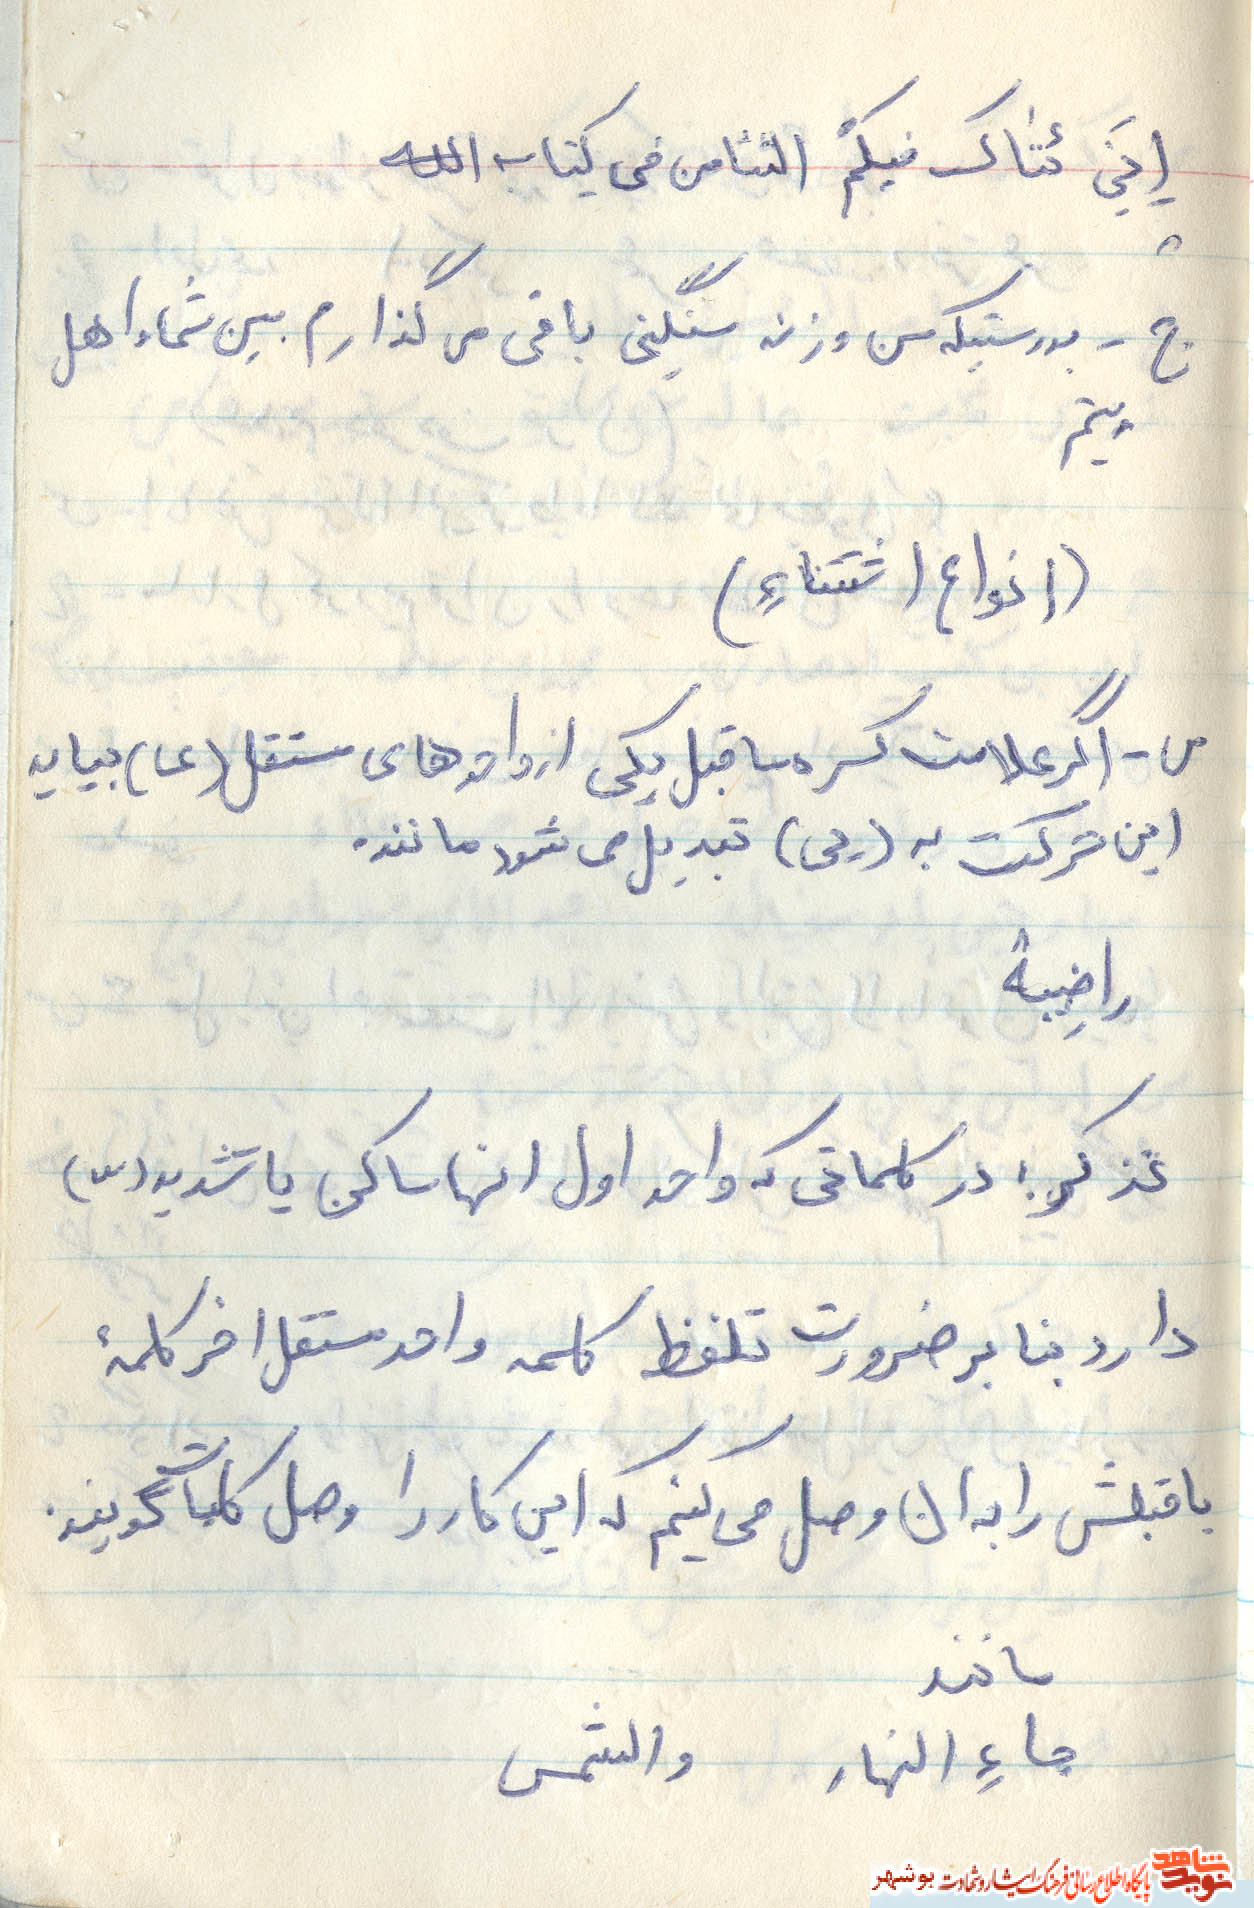 اِنّیَ تُتٰاک فیکُمْ الثنامن فی کیتاب الله
ج - بدرستیکه من وزنه سنگینی باقی می گذارم بین شماء اهل
ویتم
(انواع اشتناءِ)
س - اگر علامت کسره ماقبل یکی از واحدهای مستقل (عا) بیاید
این حرکت به (یی) تبدیل می شود مانند.
راضِیبة
تذکر: در کلماتی که واحد اول انها ساکن یا تشدید (ّ)
دارد بنا بر ضرورت تلفظ کلمه واحد مستقل اخر کلمهٔ
باقبلش را به ان وصل می کنیم که این کار را وصل کلمات گویند.
مانند
جاءِ النهار والشمس
نوید شاهد
پایگاه اطلاع رسانی فرهنگ ایثار و شهادت بوشهر